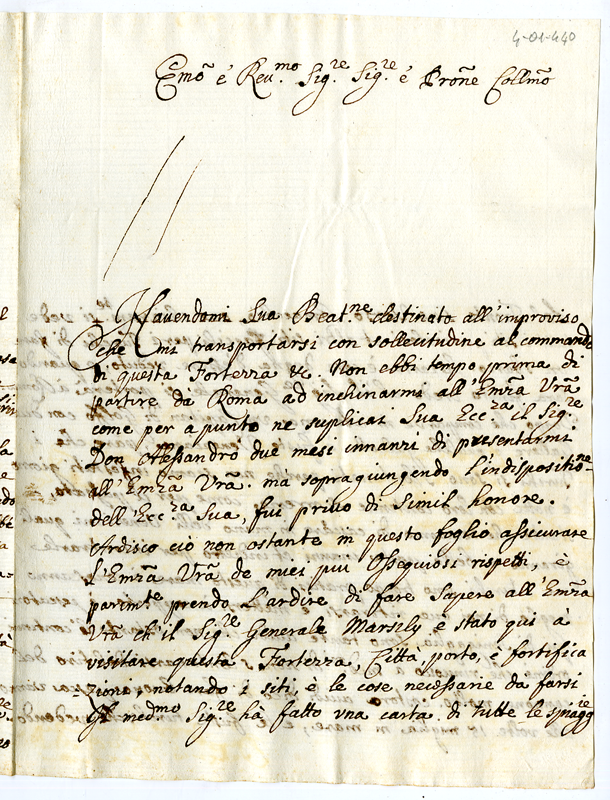 4-01-440
Emo è Reu.mo Sig.re Sig.re è Prone Collmo
Hauendomi Sua Beat.ne destinato all'improuiso
che mi transportarsi con sollecitudine al commando
di questa Fortezza &c. Non ebbi tempo prima di
partire da Roma ad inchinarmi all'Emza Vra
come per à punto ne suplicai Sua Ecc.za il Sig.re
Don Alessandro due mesi innanzi di presentarmi
all'Emza Vra. mà sopragiungendo l'indispositione
dell'Ecc.za Sua, fui priuo di simil honore.
Ardisco ciò non ostante in questo foglio assicurare
l'Emza Vra de miei piu Ossequiosi rispetti, è
parim.te prendo l'ardire di fare sapere all'Emza
Vra ch'il Sig.re Generale Marsily è stato qui à
visitare questa Fortezza, Città, porto, è fortifica
zioni, notando i siti, è le cose necessarie da farsi
Il med.mo Sig.re hà fatto vna carta di tutte le spiagg.ie